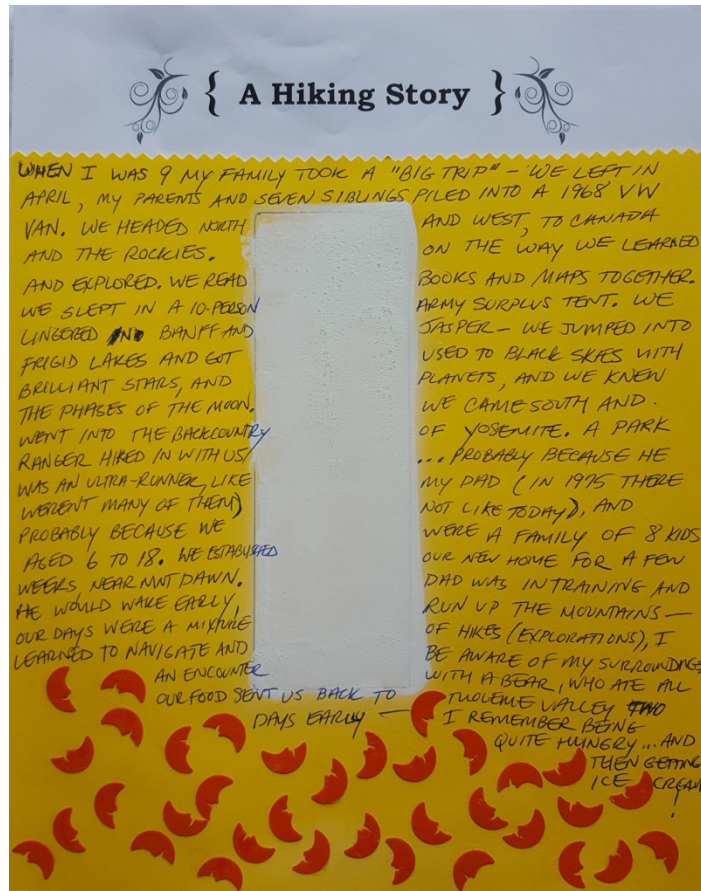 { A Hiking Story }
WHEN I WAS 9 MY FAMILY TOOK A "BIG TRIP" - WE LEFT IN
APRIL, MY PARENTS AND SEVEN SIBLINGS PILED INTO A 1968 VW
VAN. WE HEADED NORTH AND WEST, TO CANADA
AND THE ROCKIES. ON THE WAY WE LEARNED
AND EXPLORED. WE READ BOOKS AND MAPS TOGETHER.
WE SLEPT IN A 10-PERSON ARMY SURPLUS TENT. WE
LINGERED IN BANFF AND JASPER - WE JUMPED INTO
FRIGID LAKES AND GOT USED TO BLACK SKIES WITH
BRILLIANT STARS, AND PLANETS, AND WE KNEW
THE PHASES OF THE MOON. WE CAME SOUTH AND.
WENT INTO THE BACKCOUNTRY OF YOSEMITE. A PARK
RANGER HIKED IN WITH US ... PROBABLY BECAUSE HE
WAS AN ULTRA-RUNNER, LIKE MY DAD (IN 1975 THERE
WERENT MANY OF THEM) NOT LIKE TODAY), AND
PROBABLY BECAUSE WE WERE A FAMILY OF 8 KIDS
AGED 6 TO 18. WE ESTABLISHED OUR NEW HOME FOR A FEW
WEEKS, NEAR MNT DAWN. DAD WAS IN TRAINING AND
HE WOULD WAKE EARLY, RUN UP THE MOUNTAINS -
OUR DAYS WERE A MIXTURE OF HIKES (EXPLORATIONS), I
LEARNED TO NAVIGATE AND BE AWARE OF MY SURROUNDINGS
AN ENCOUNTER WITH A BEAR, WHO ATE ALL
OUR FOOD SENT US BACK TO TUOLEME VALLEY TWO
DAYS EARLY - I REMEMBER BEING
QUITE HUNGRY... AND
THEN GETTING
ICE CREAM
!